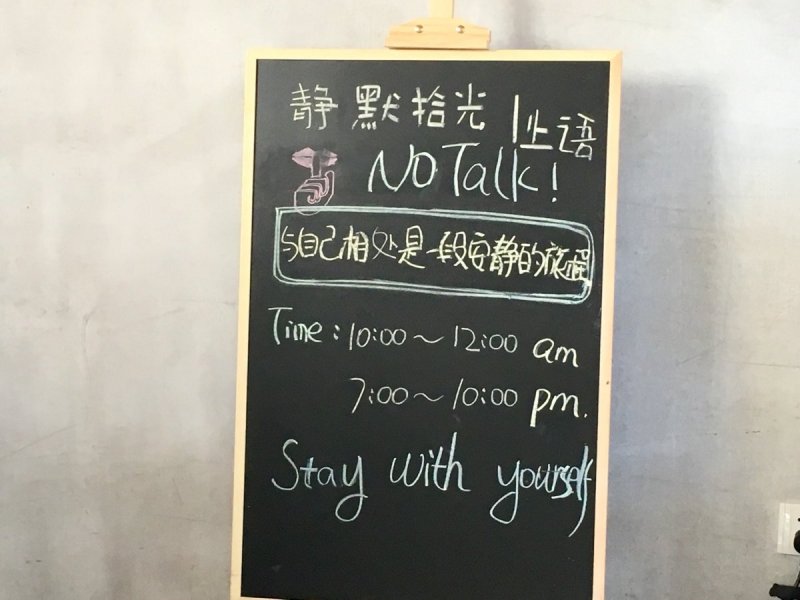 静默拾光 止语
NO Talk!
与自己相处是一段安静的旅程
Time: 10:00~12:00 am
7:00~10:00 pm.
Stay with yourself